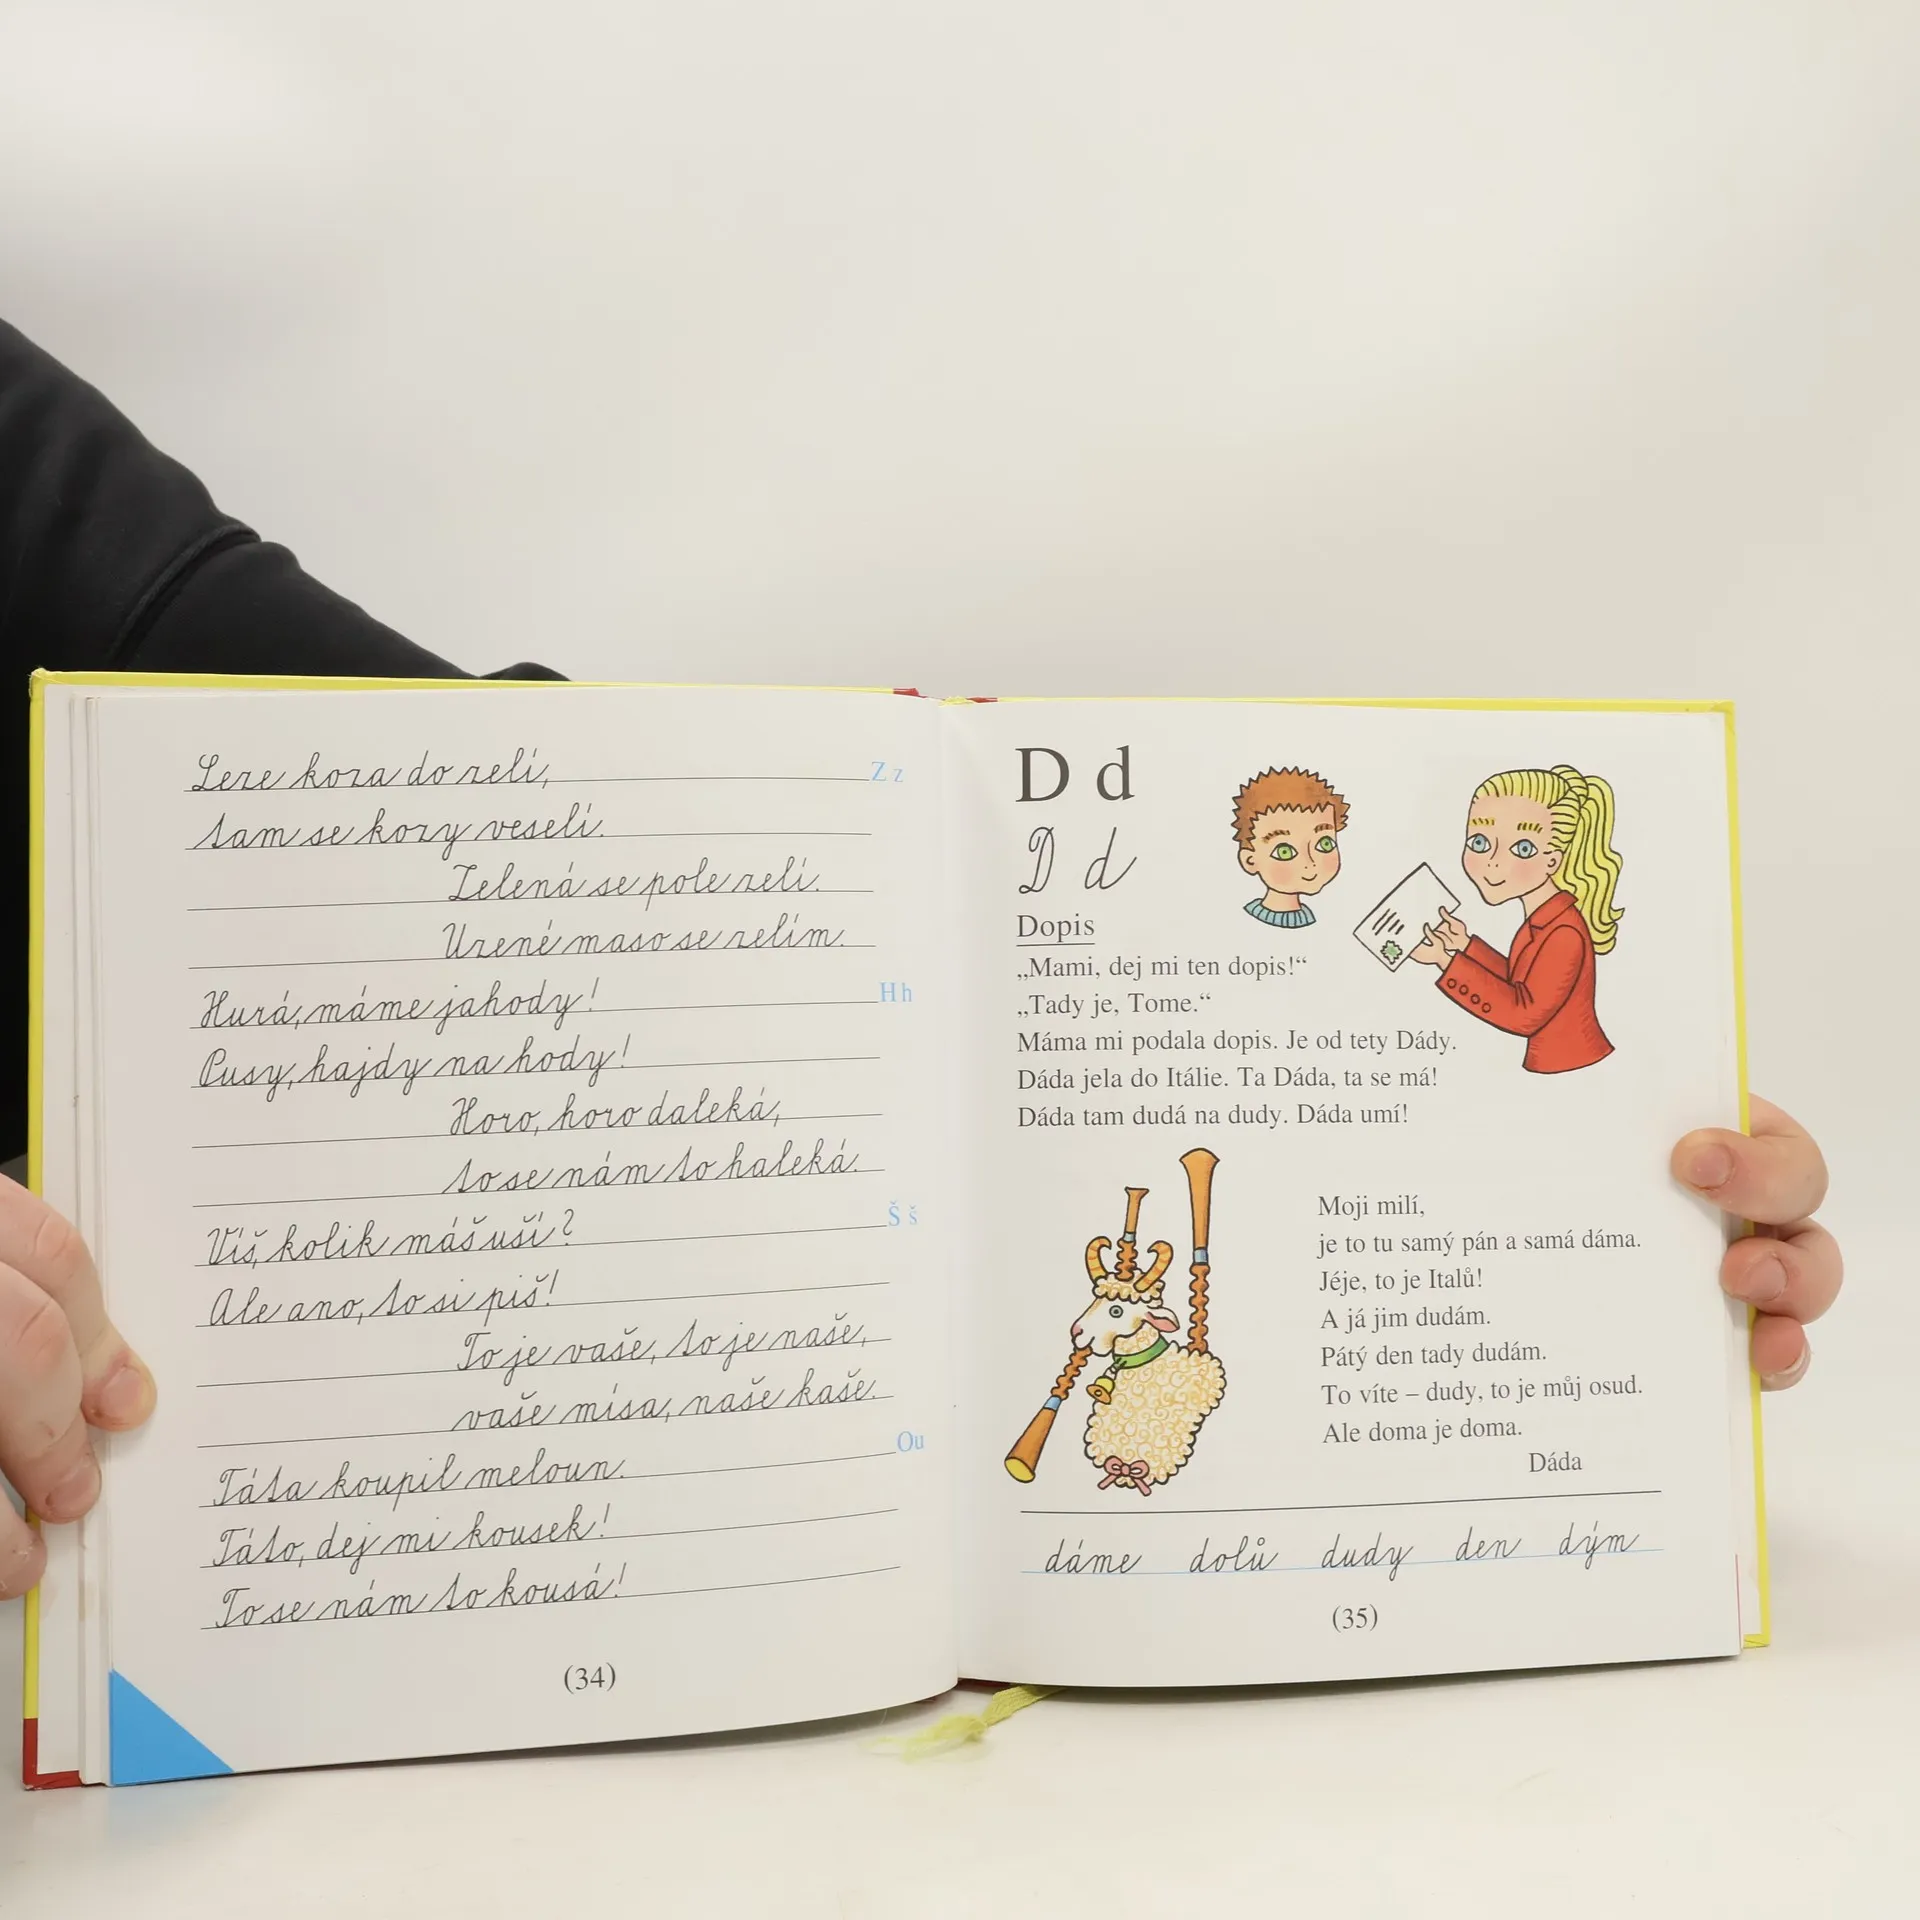 Leze koza do zelí,
Z z
tam se kozy veselí.
Zelená se pole zelí.
Uzené maso se zelím.
Hurá, máme jahody!
H h
Pusy, hajdy na hody!
Horo, horo daleká,
to se nám to haleká.
Víš, kolik máš uší?
Š š
Ale ano, to si piš!
To je vaše, to je naše,
vaše mísa, naše kaše.
Ou
Táta koupil meloun.
Táto, dej mi kousek!
To se nám to kousá!
(34)
D d
D d
Dopis
„Mami, dej mi ten dopis!“
„Tady je, Tome.“
Máma mi podala dopis. Je od tety Dády.
Dáda jela do Itálie. Ta Dáda, ta se má!
Dáda tam dudá na dudy. Dáda umí!
Moji milí,
je to tu samý pán a samá dáma.
Jéje, to je Italů!
A já jim dudám.
Pátý den tady dudám.
To víte – dudy, to je můj osud.
Ale doma je doma.
Dáda
dáme dolů dudy den dým
(35)